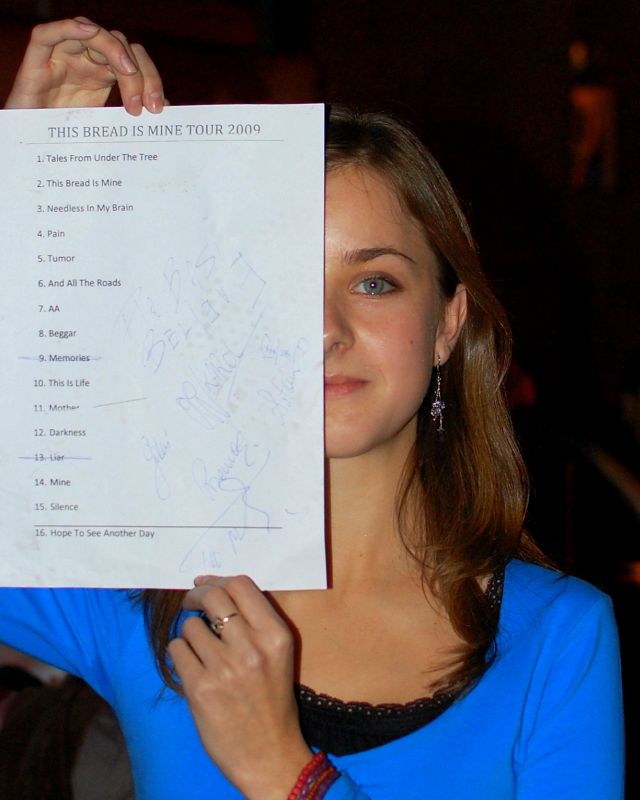 THIS BREAD IS MINE TOUR 2009
1. Tales From Under The Tree
2. This Bread Is Mine
3. Needless In My Brain
4. Pain
5. Tumor
6. And All The Roads
7. AA
8. Beggar
9. Memories
10. This Is Life
11. Mother
12. Darkness
13. Liar
14. Mine
15. Silence
16. Hope To See Another Day